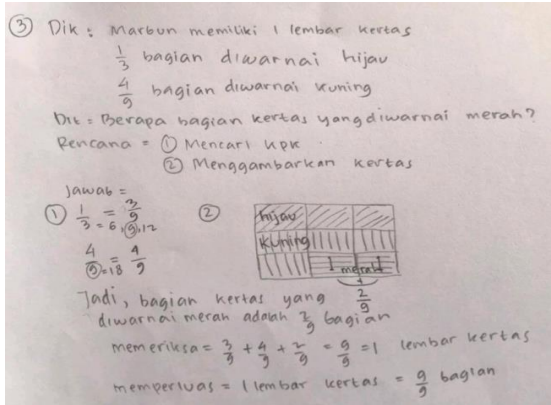 ③ Dik : Marbun memiliki 1 lembar kertas
1/3 bagian diwarnai hijau
4/9 bagian diwarnai kuning
Dit = Berapa bagian kertas yang diwarnai merah?
Rencana = ① Mencari KPK
② Menggambarkan kertas
Jawab =
① 1/3 = 3/9
= 6, ⑨, 12
4/⑨ = 4/9
= 18
② hijau
kuning
merah
2/9
Jadi, bagian kertas yang
diwarnai merah adalah 2/9 bagian
memeriksa = 3/9 + 4/9 + 2/9 = 9/9 = 1 lembar kertas
memperluas = 1 lembar kertas = 9/9 bagian